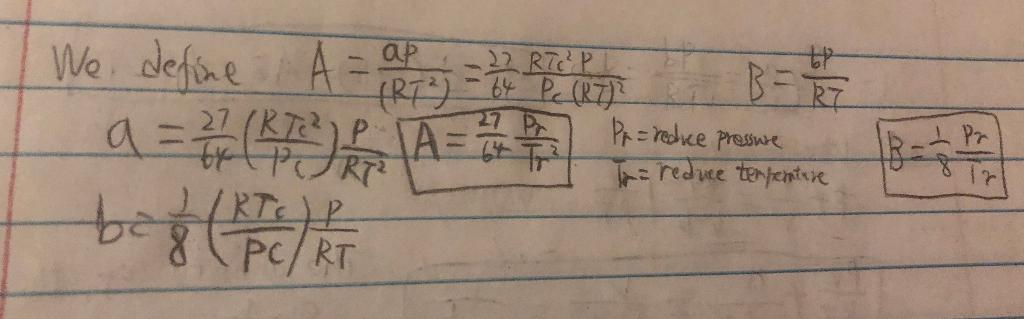 We define A = aP/(RT²) = 27/64 RTc² P/Pc (RT)² B = bP/RT
a = 27/64 (RTc²/Pc) P/RT² A = 27/64 Pr/Tr² Pr = reduce pressure B = 1/8 Pr/Tr
Tr = reduce temperature
b = 1/8 (RTc/PC) P/RT